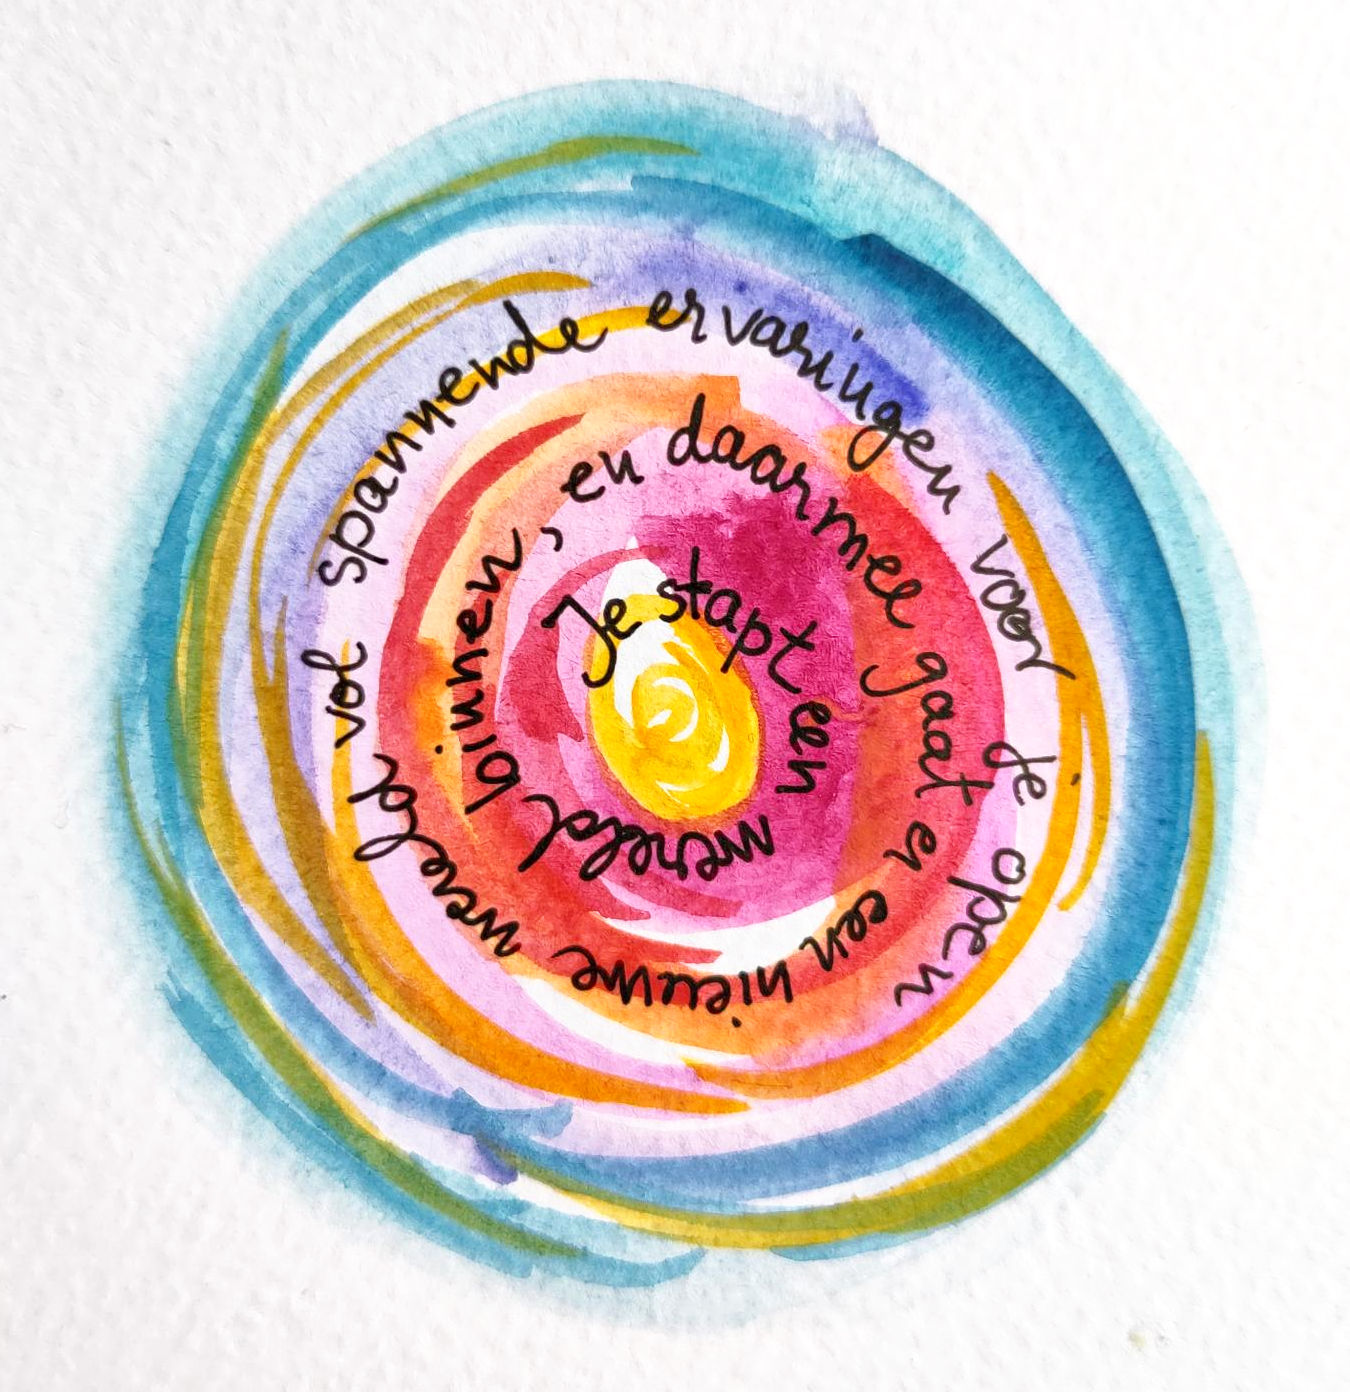 Je stapt een wereld binnen, en daarmee gaat er een nieuwe wereld vol spannende ervaringen voor je open